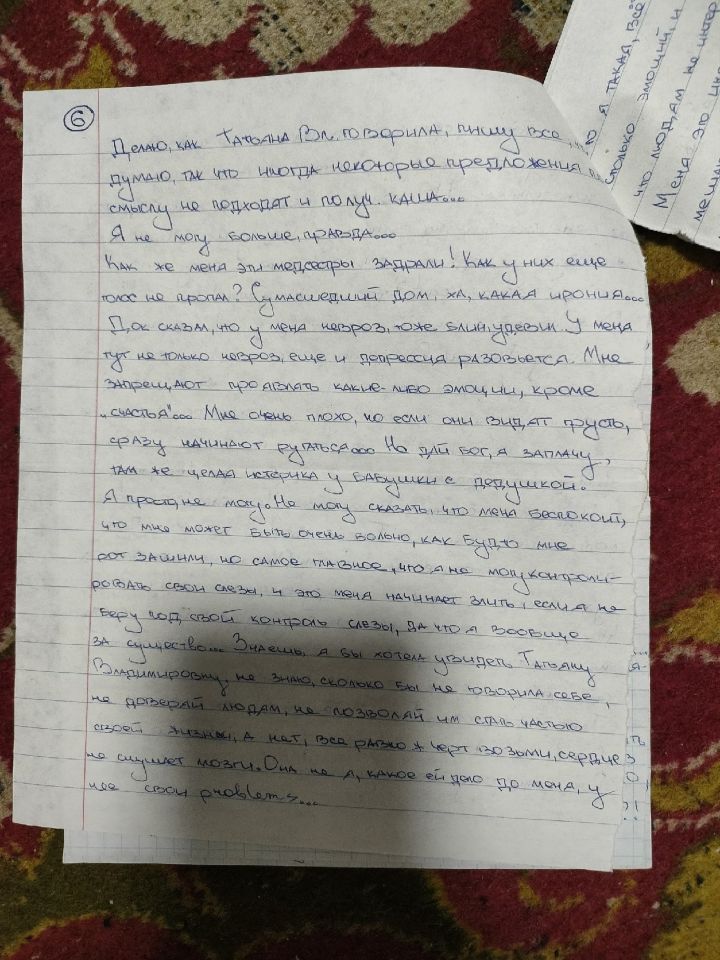 6
Делаю, как Татьяна Вл. говорила, пишу все,
думаю, так что иногда некоторые предложения
смыслу не подходят и получ. каша...
Я не могу больше, правда...
Как же меня эти медсестры задрали! Как у них еще
голос не пропал? Сумасшедший дом, ха, какая ирония...
Док сказал, что у меня невроз, тоже блин, удевил. У меня
тут не только невроз, еще и депрессия разовьется. Мне
запрещают проявлять какие-либо эмоции, кроме
"счастья"... Мне очень плохо, но если они видят грусть,
сразу начинают ругаться... Не дай бог, я заплачу,
там же целая истерика у бабушки с дедушкой.
Я просто, не могу. Не могу сказать, что меня беспокоит,
что мне может быть очень больно, как будто мне
рот зашили, но самое главное, что я не могу контроли-
ровать свои слезы, и это меня начинает злить, если я не
беру под свой контроль слезы, да что я вообще
за существо... Знаешь, я бы хотела увидеть Татьяну
Владимировну, не знаю, сколько бы не говорила себе,
не доверяй людям, не позволяй им стать частью
своей жизни, а нет, все равно ж черт возьми, сердце
не слушает мозги. Она не я, какое ей дело до меня, у
нее свои problems...
я такая, всё
сколько эмоций, и
что людям не интер
Меня это